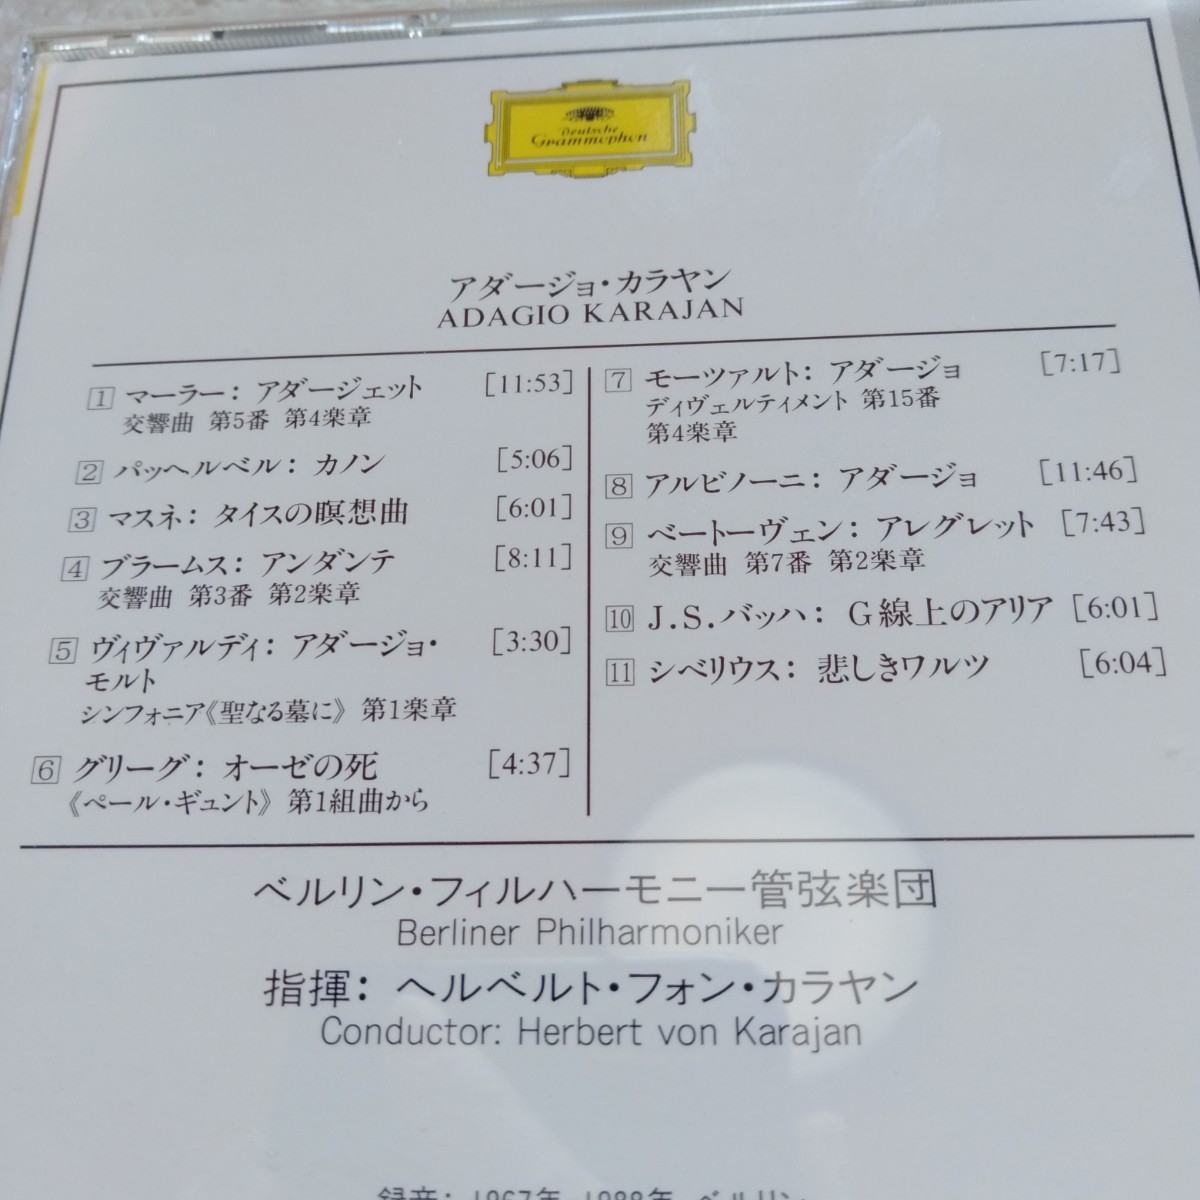 Deutsche
Grammophon
アダージョ・カラヤン
ADAGIO KARAJAN
1 マーラー: アダージェット [11:53]
交響曲 第5番 第4楽章
2 パッヘルベル: カノン [5:06]
3 マスネ: タイスの瞑想曲 [6:01]
4 ブラームス: アンダンテ [8:11]
交響曲 第3番 第2楽章
5 ヴィヴァルディ: アダージョ・ [3:30]
モルト
シンフォニア《聖なる墓に》 第1楽章
6 グリーグ: オーゼの死 [4:37]
《ペール・ギュント》 第1組曲から
7 モーツァルト: アダージョ [7:17]
ディヴェルティメント 第15番
第4楽章
8 アルビノーニ: アダージョ [11:46]
9 ベートーヴェン: アレグレット [7:43]
交響曲 第7番 第2楽章
10 J.S.バッハ: G線上のアリア [6:01]
11 シベリウス: 悲しきワルツ [6:04]
ベルリン・フィルハーモニー管弦楽団
Berliner Philharmoniker
指揮: ヘルベルト・フォン・カラヤン
Conductor: Herbert von Karajan
録音: 1967年-1988年 ベルリン